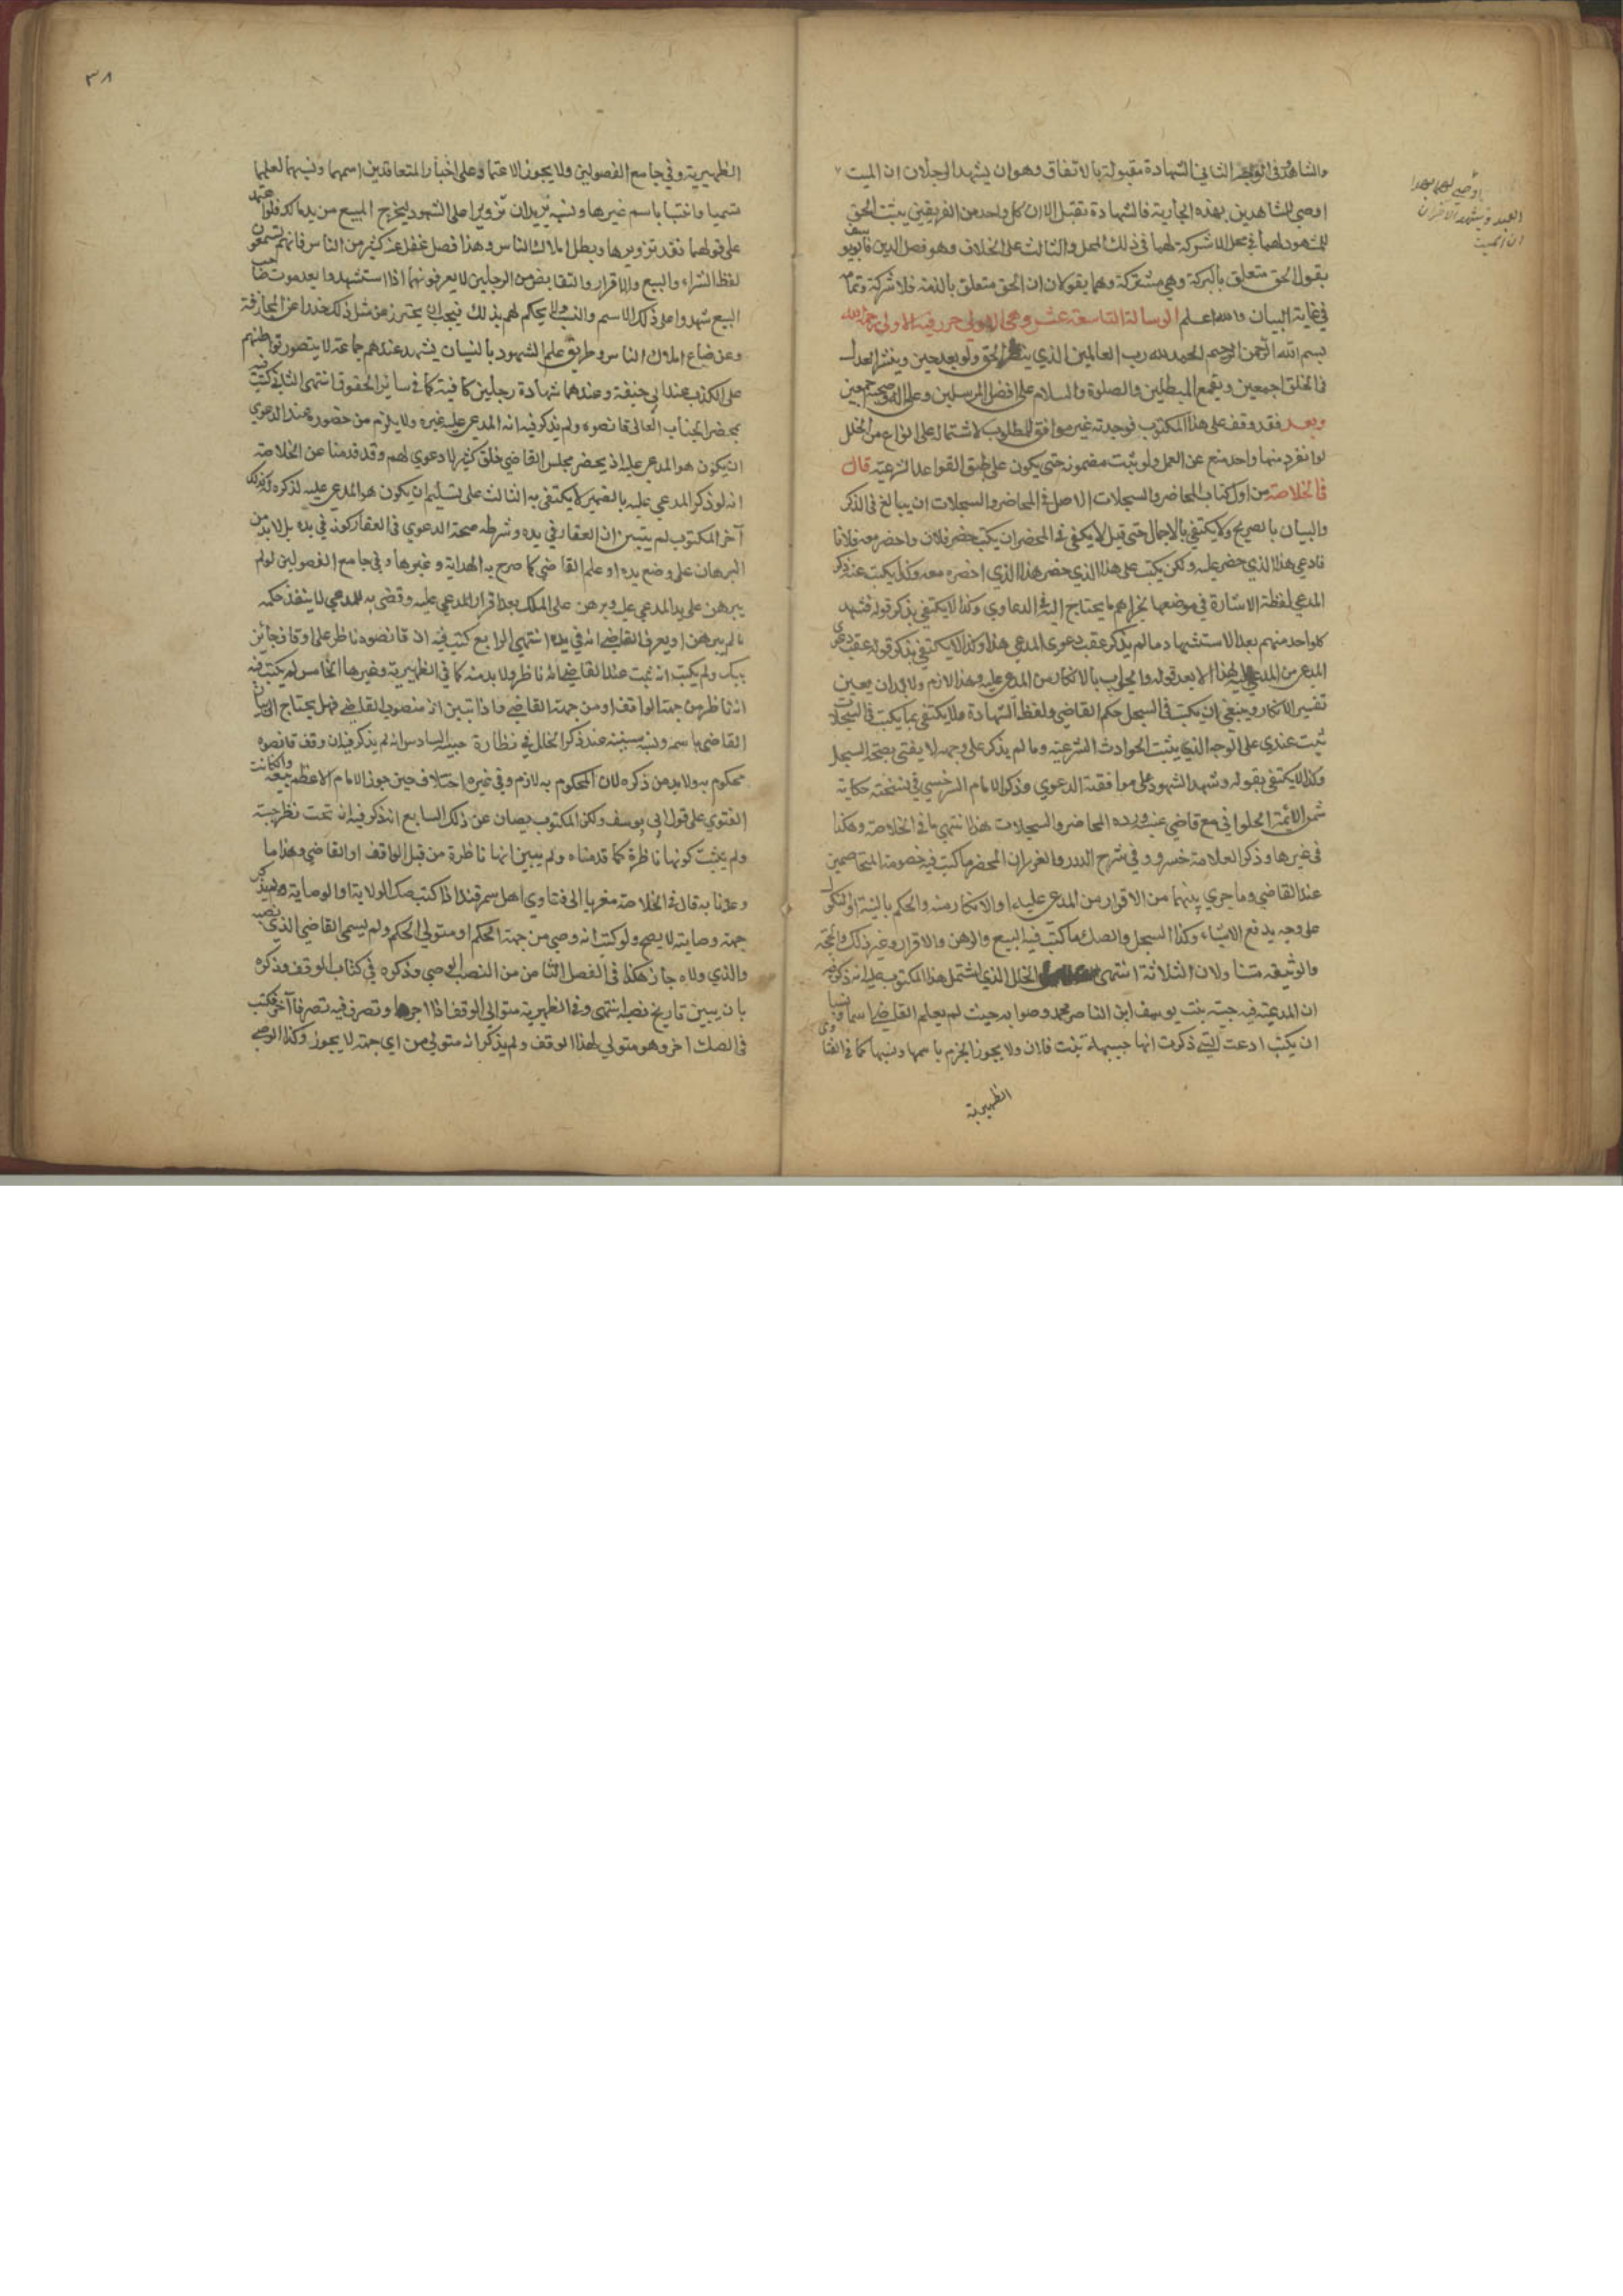 والشاهد في الثاني الشهادة مقبولة بالاتفاق وهو ان يشهد الرجلان ان الميت
اوصى للشاهدين بهذه الجارية فالشهادة تقبل لان كل واحد من الفريقين يثبت الحق
للمشهود لهما في محل لا شركة لهما في ذلك المحل والثالث على الخلاف وهو فصل الدين فابو يوسف
يقول الحق متعلق بالتركة وهي مشتركة وهما يقولان ان الحق متعلق بالذمة فلا شركة وتمامه
في غاية البيان والله اعلم الرسالة التاسعة عشر وهي الاولى حرر فيه الاولى رحمه الله
بسم الله الرحمن الرحيم الحمد لله رب العالمين الذي يظهر الحق ولو بعد حين وينشر العدل
في الخلق اجمعين ويقمع المبطلين والصلوة والسلام على افضل المرسلين وعلى اله وصحبه اجمعين
وبعد فقد وقفت على هذا المكتوب فوجدته غير موافق للمطلوب لاشتماله على انواع من الخلل
لو انفرد منها واحد منع عن العمل ولو يثبت مضمونه حتى يكون على طبق القواعد الشرعية قال
في الخلاصة من اول كتاب المحاضر والسجلات الاصل في المحاضر والسجلات ان يبالغ في الذكر
والبيان بالصريح ولا يكتفي بالاجمال حتى قيل لا يكفي في المحضر ان يكتب حضر فلان واحضر معه فلانا
فادعى هذا الذي حضر عليه ولكن يكتب على هذا الذي حضر هذا الذي احضره معه وكذا يكتب عند ذكر
المدعي لفظة الاشارة في موضعها ما يحتاج اليه في الدعاوي وكذا لا يكتفي بذكر قوله فشهد
كل واحد منهم بعد الاستشهاد ما لم يذكر عقيب دعوى المدعي هذا وكذا لا يكتفي بذكر قوله عقيب دعوى
المدعي من المدعى عليه هذا الا بعد قوله والجواب بالانكار من المدعى عليه وهذا لازم ولا بد ان يعين
تفسير الانكار وينبغي ان يكتب في السجل حكم القاضي ولفظ الشهادة ولا يكتفي بما يكتب في السجلات
ثبت عندي على الوجه الذي يثبت الحوادث الشرعية وما لم يذكر على وجهه لا يفتى بصحة السجل
وكذا لا يكتفي بقوله وشهد الشهود على موافقة الدعوي وذكر الامام السرخسي في نسخته حكاية
شمس الائمة الحلواني مع قاضي عنبسة ورده المحاضر والسجلات هذا انتهى ما في الخلاصة وهكذا
في غيرها وذكر العلامة خسرو في شرح الدرر والغرر ان المحضر ما كتب فيه خصومة المتخاصمين
عند القاضي وما جرى بينهما من الاقرار من المدعى عليه او الانكار منه والحكم بالبينة او النكول
على وجه يدفع الاشتباه وكذا السجل والصك ما كتب فيه البيع والرهن والاقرار وغير ذلك والحجة
والوثيقة متناولان الثلاثة انتهى الخلل الذي اشتمل هذا المكتوب عليه انه ذكر فيه
ان المدعية فيه بنت يوسف ابن الناصر محمد وصوابه حيث لم يعلم القاضي اسما ونسبا
ان يكتب ادعت التي ذكرت انها بنت فلان ولا يجوز الجزم باسمها ونسبها كما في الفتاوى
الظهيرية
العبد ويشهد الاخران
ان الميت
٣٨
الظهيرية وفي جامع الفصولين ولا يجوز الاعتماد على اخبار المتعاقدين اسمهما ونسبهما لعلهما
تسميا وانتسبا باسم غيرهما ونسبه يريدان تزويرا على الشهود ليخرج المبيع من يد مالكه فلو اعتمد
على قولهما نفذ تزويرهما وبطل املاك الناس وهذا فصل غفل عنه كثير من الناس فانهم يسمعون
لفظ الشراء والبيع والاقرار والتقابض من الرجلين لا يعرفونهما اذا استشهدوا بعد موت صاحب
البيع شهدوا على ذلك الاسم والنسب ولا يحكم لهم بذلك فيجب ان يحترز من مثل ذلك حذرا عن المجازفة
وعن ضياع املاك الناس وطريق علم الشهود بالنسبان يشهد عندهم جماعة لا يتصور تواطئهم
على الكذب عند ابي حنيفة وعندهما شهادة رجلين كافية كما في سائر الحقوق انتهى الثاني كتب فيه
بمحضر الجناب العالي قانصوه ولم يذكر فيه انه المدعى عليه غيره ولا يلزم من حضوره عند الدعوي
ان يكون هو المدعى عليه اذ يحضر مجلس القاضي خلق كثير لا دعوي لهم وقد قدمنا عن الخلاصة
انه لو ذكر المدعي عليه بالضمير لا يكتفى به الثالث على تسليم ان يكون هو المدعى عليه لذكره كذلك
آخر المكتوب لم يتبين ان العقار في يده وشرطه صحة الدعوي في العقار كونه في يده بل لا بد من
البرهان على وضع يده او علم القاضي كما صرح به الهداية وغيرها وفي جامع الفصولين لو لم
يبرهن على يد المدعى عليه وبرهن على الملك بعد اقرار المدعى عليه وقضى به للمدعي لا ينفذ حكمه
ما لم يبرهن او يعرف القاضي انه في يده انتهى الرابع كتب فيه ان قانصوه ناظر على اوقاف جاني
بيك ولم يكتب انه ثبت عند القاضي انه ناظر ولا بد منه كما في الظهيرية وغيرها الخامس لم يكتب فيه
انه ناظر من جهة الواقف او من جهة القاضي واذا تبين انه منصوب القاضي فهل يحتاج الى بيان
القاضي باسمه ونسبه سنبينه عند ذكر الخلل في نظارة السادس انه لم يذكر فيه ان وقف قانصوه
محكوم به ولا بد من ذكره لان المحكوم به لازم وفي غيره اختلاف حين جوز الامام الاعظم بيعه وان كانت
الفتوي على قول ابي يوسف ولكن المكتوب يصان عن ذلك السابع انه ذكر فيه انه تحت نظر
ولم يثبت كونها ناظرة كما قدمناه ولم يبين انها ناظرة من قبل الواقف او القاضي وهذا ما
وعدنا به قال في الخلاصة معزيا الى فتاوي اهل سمرقند اذا كتب صك الولاية او الوصاية ولم يذكر
جهة وصايته لا يصح ولو كتب انه وصي من جهة الحكم او متولي الحكم ولم يسمى القاضي الذي نصبه
والذي ولاه جاز هكذا في الفصل الثامن من النصب الوصي وذكره في كتاب الوقف وذكره
بان يبين تاريخ نصبه انتهى وفي الظهيرية متولي الوقف اذا اجرها وتصرف فيه تصرفا آخر فكتب
في الصك اخر وهو متولي لهذا الوقف ولم يذكر انه متولي من اي جهة لا يجوز وكذا الوصي